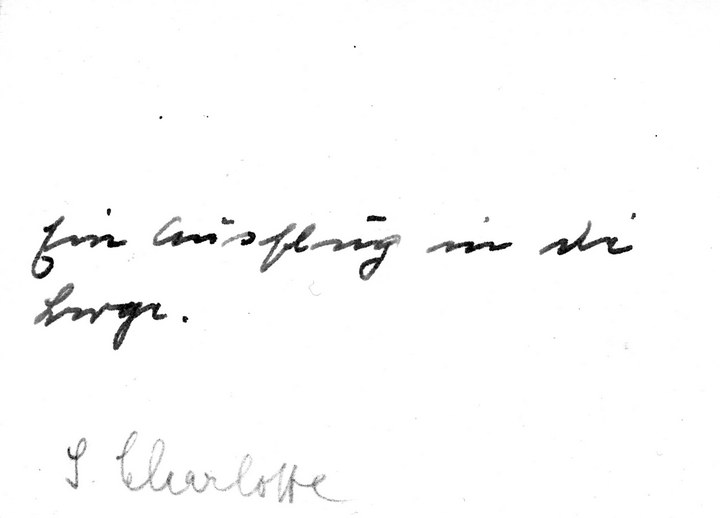 Ein Ausflug in die
Berge.
S. Charlotte